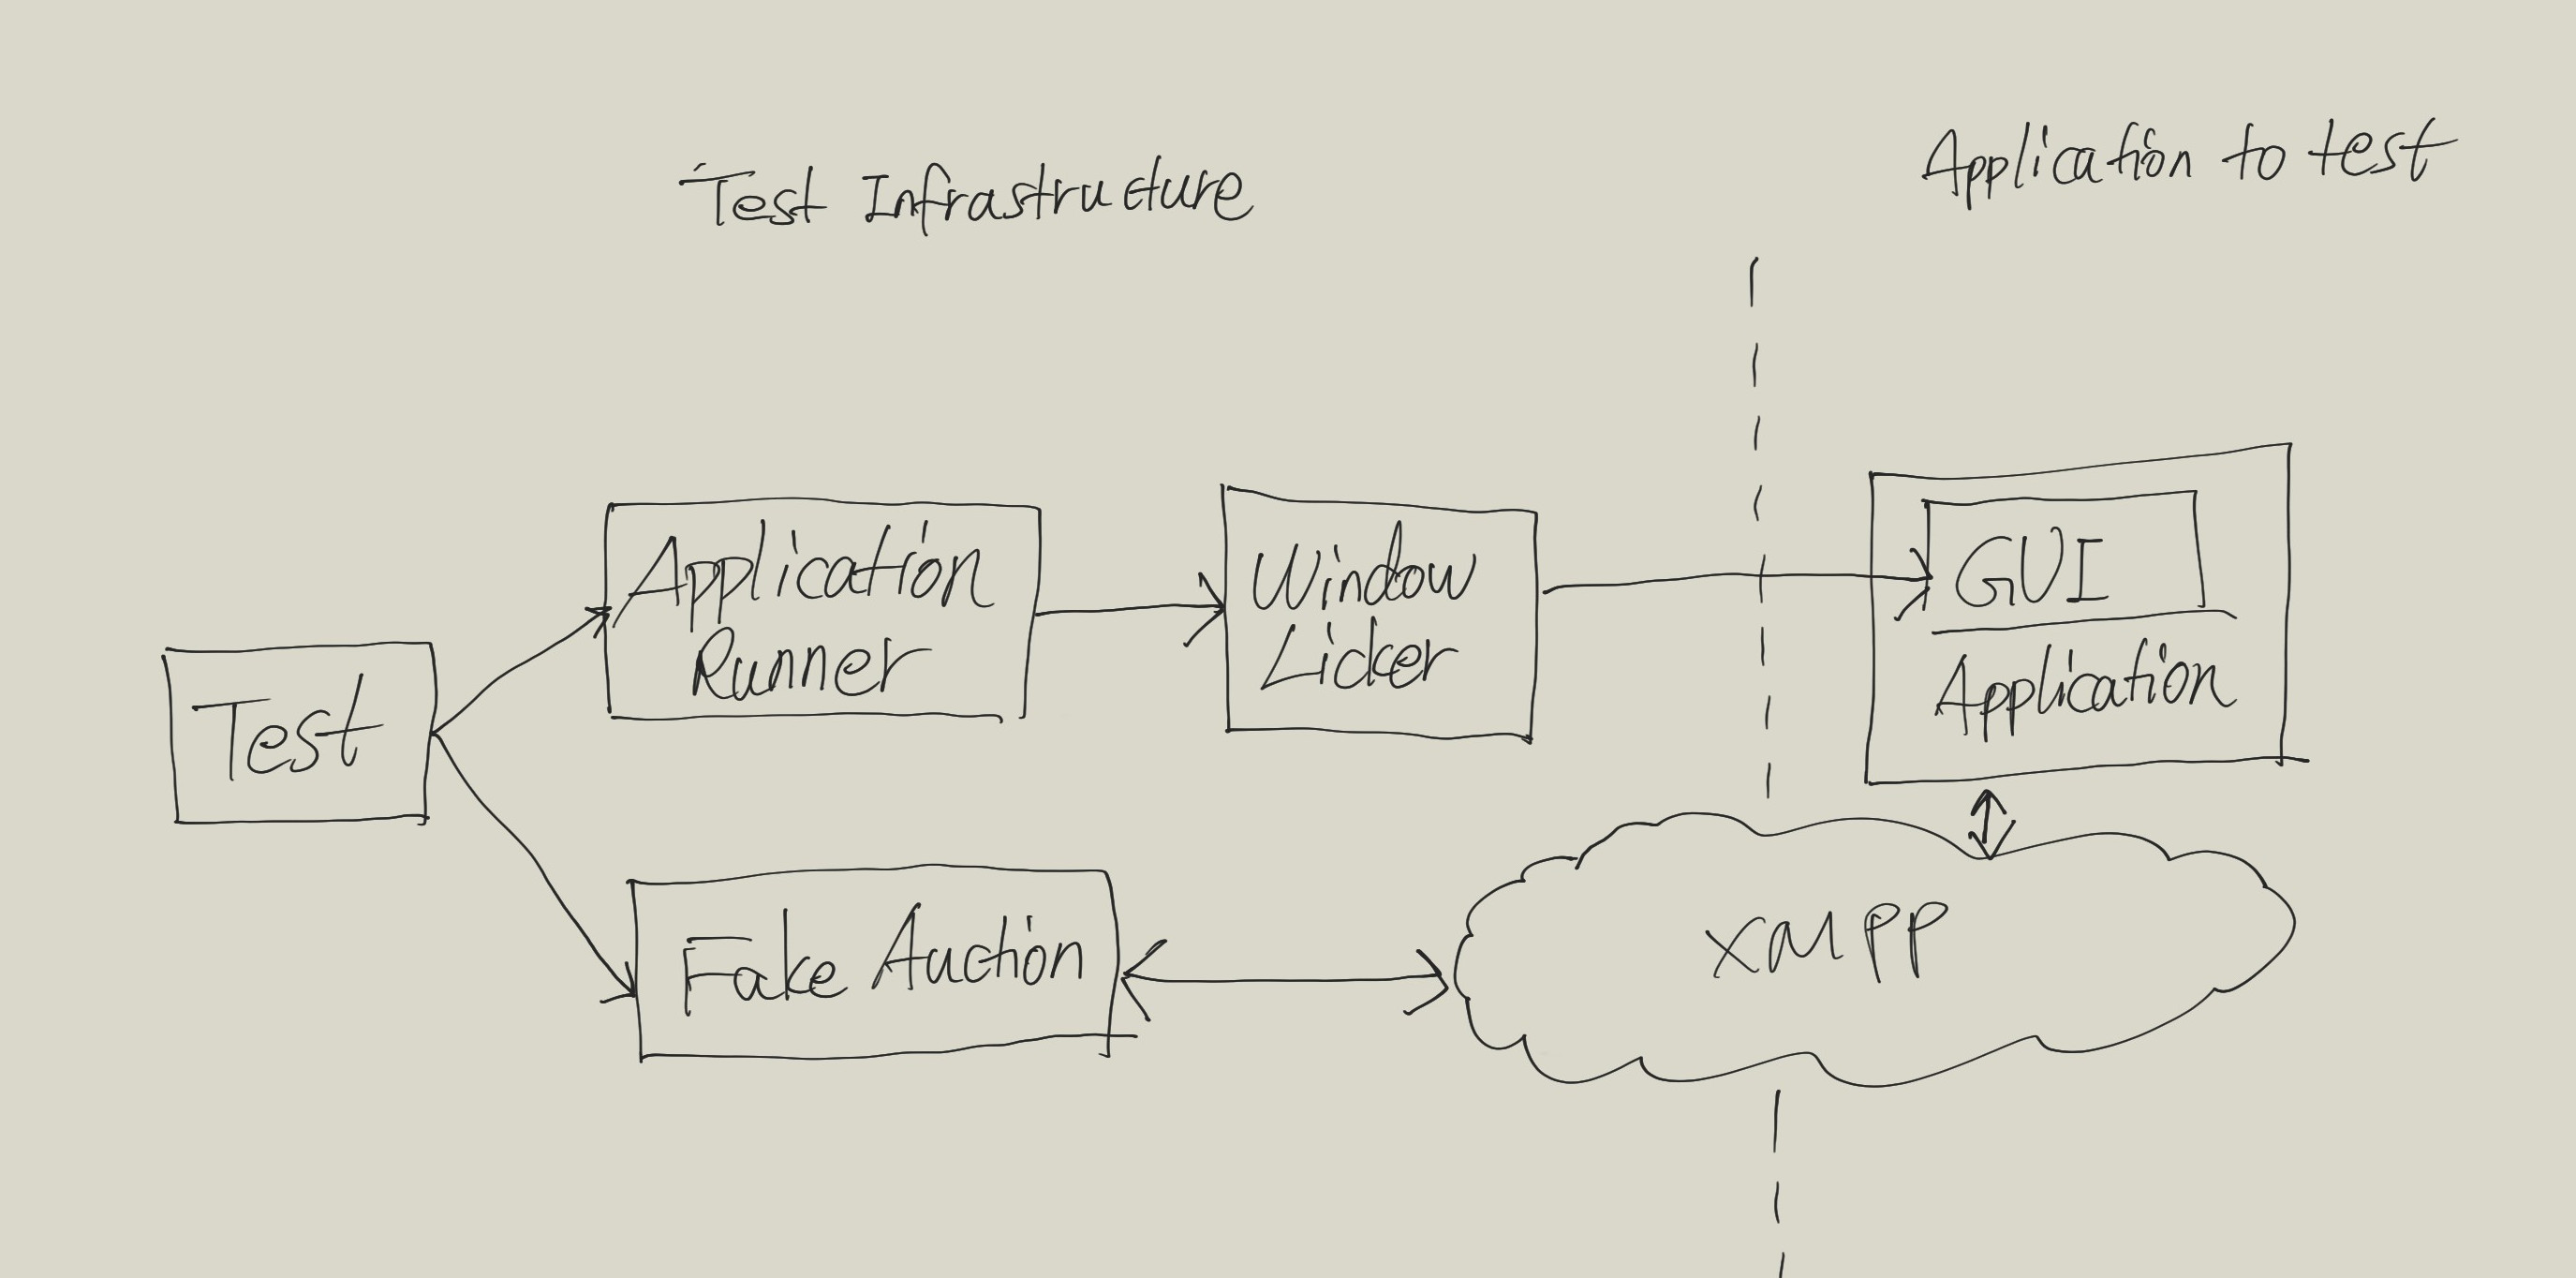 Test Infrastructure
Application to test
Application
Runner
Window
Licker
GUI
Application
Test
Fake Auction
XMPP